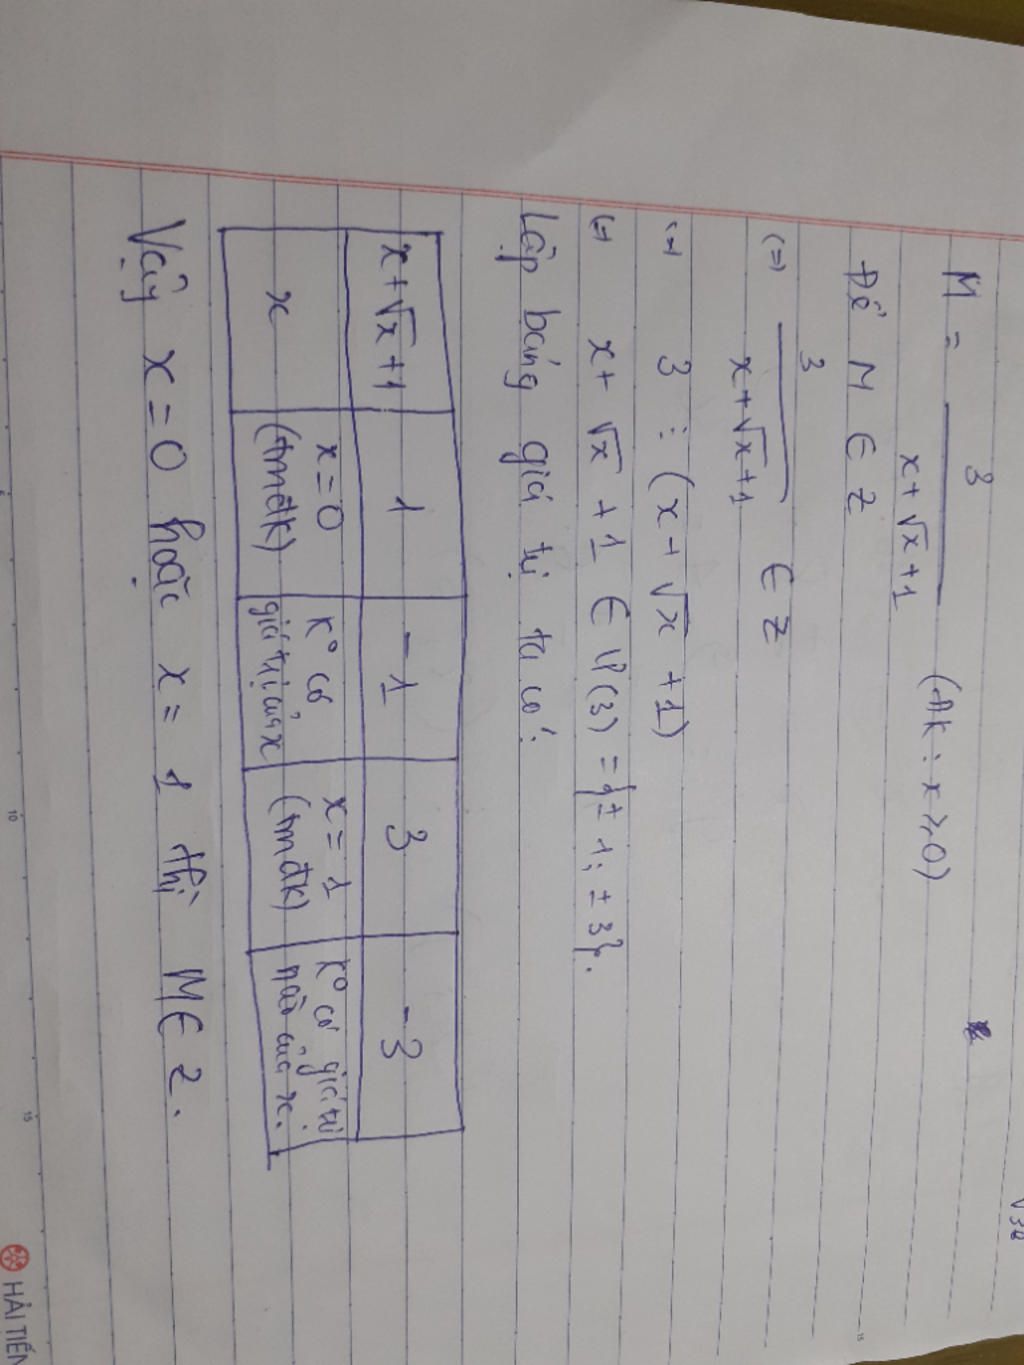 √38
M = 3 / (x + √x + 1) (ĐK : x ≥ 0)
Để M ∈ Z
(=) 3 / (x + √x + 1) ∈ Z
(=) 3 ⋮ (x + √x + 1)
(=) x + √x + 1 ∈ Ư(3) = {± 1; ± 3}.
Lập bảng giá trị ta có:
x + √x + 1 | 1 | -1 | 3 | -3
x | x = 0 (tmđk) | K° có giá trị của x | x = 1 (tmđk) | K° có giá trị nào của x.
Vậy x = 0 hoặc x = 1 thì M ∈ Z.
5 10 15
15
HẢI TIẾN